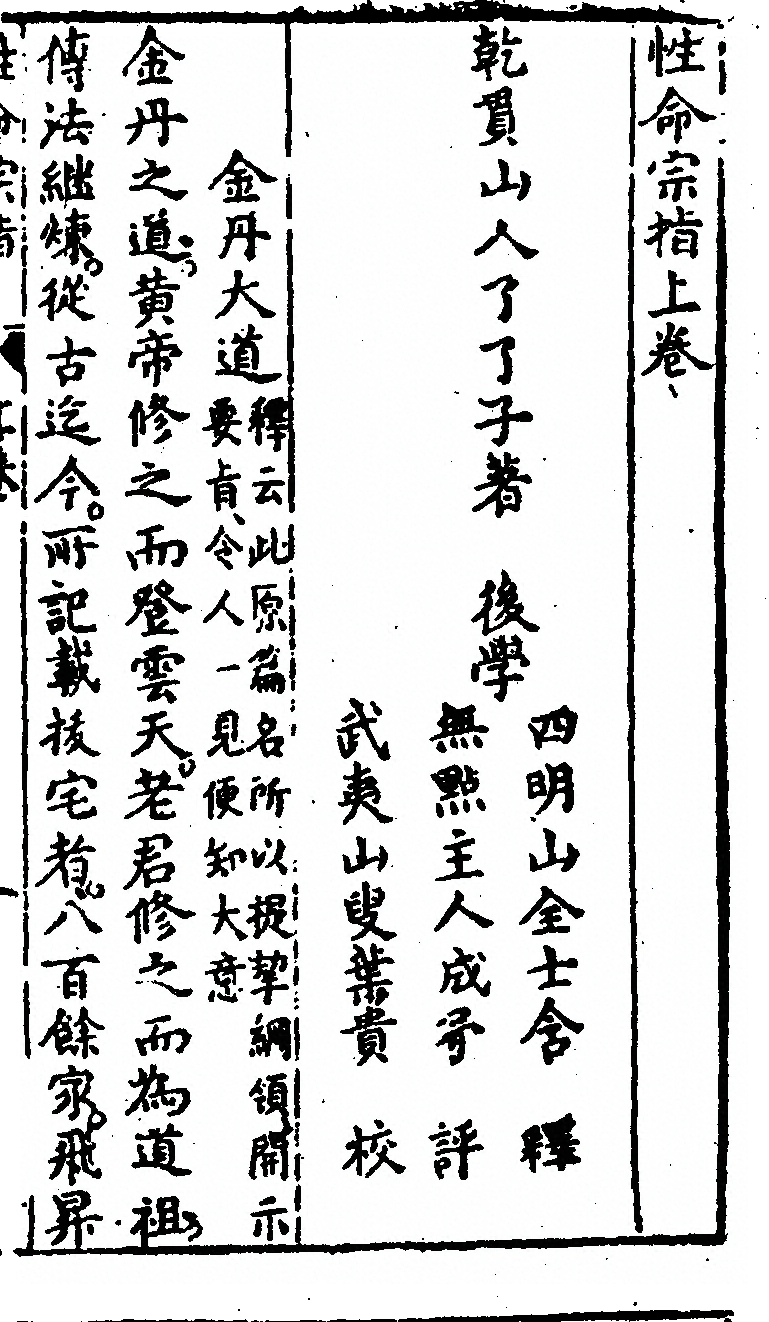 性命宗指上卷
乾貫山人了了子著　後學
四明山全士含　釋
無點主人成骨　評
武夷山叟葉貴　校
金丹大道
釋云此原篇名所以提挈綱領開示
要㫖令人一見便知大意
金丹之道黄帝修之而登雲天老君修之而為道祖
傳法繼煉從古迄今所記載抜宅者八百餘家飛昇